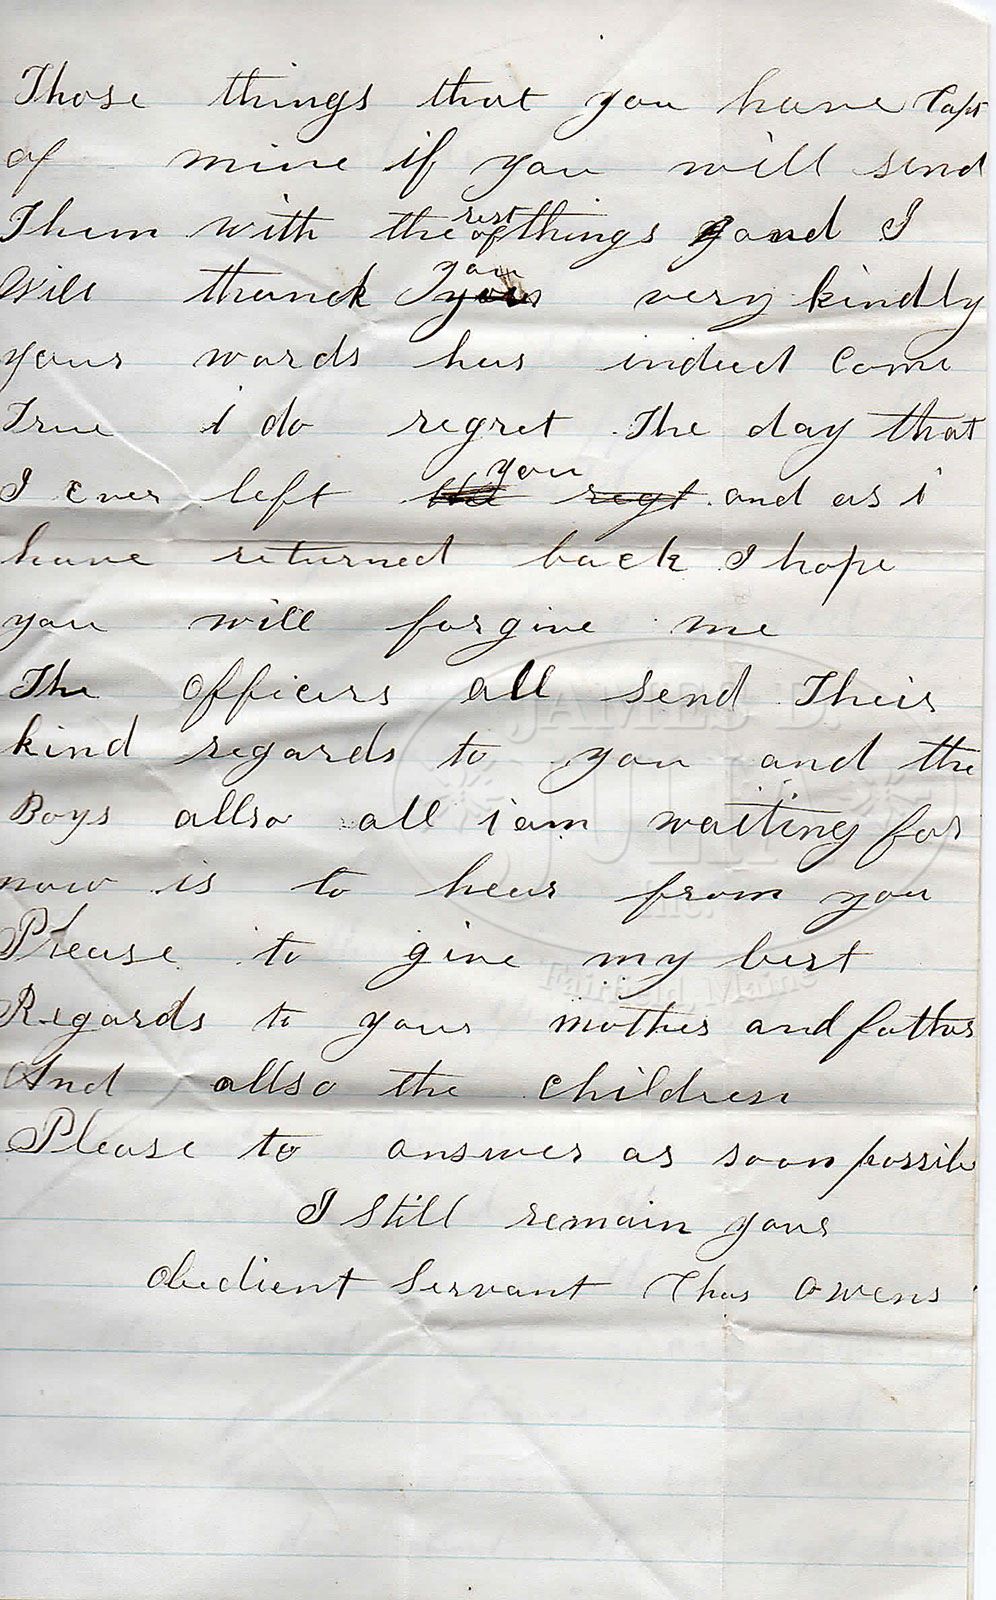 Those things that you have Capt
of mine if you will send
Them with the rest of things and I
Will thanck you very kindly
your words has indeed Come
True i do regret The day that
I ever left the you regt and as i
have returned back I hope
you will forgive me
The officers all send Their
kind regards to you and the
Boys allso all i am waiting for
now is to hear from you
Please to give my best
Regards to your mother and father
And allso the children
Please to answer as soon possible
I Still remain your
obedient Servant Thos Owens
JAMES D.
JULIA
Inc.
Fairfield, Maine